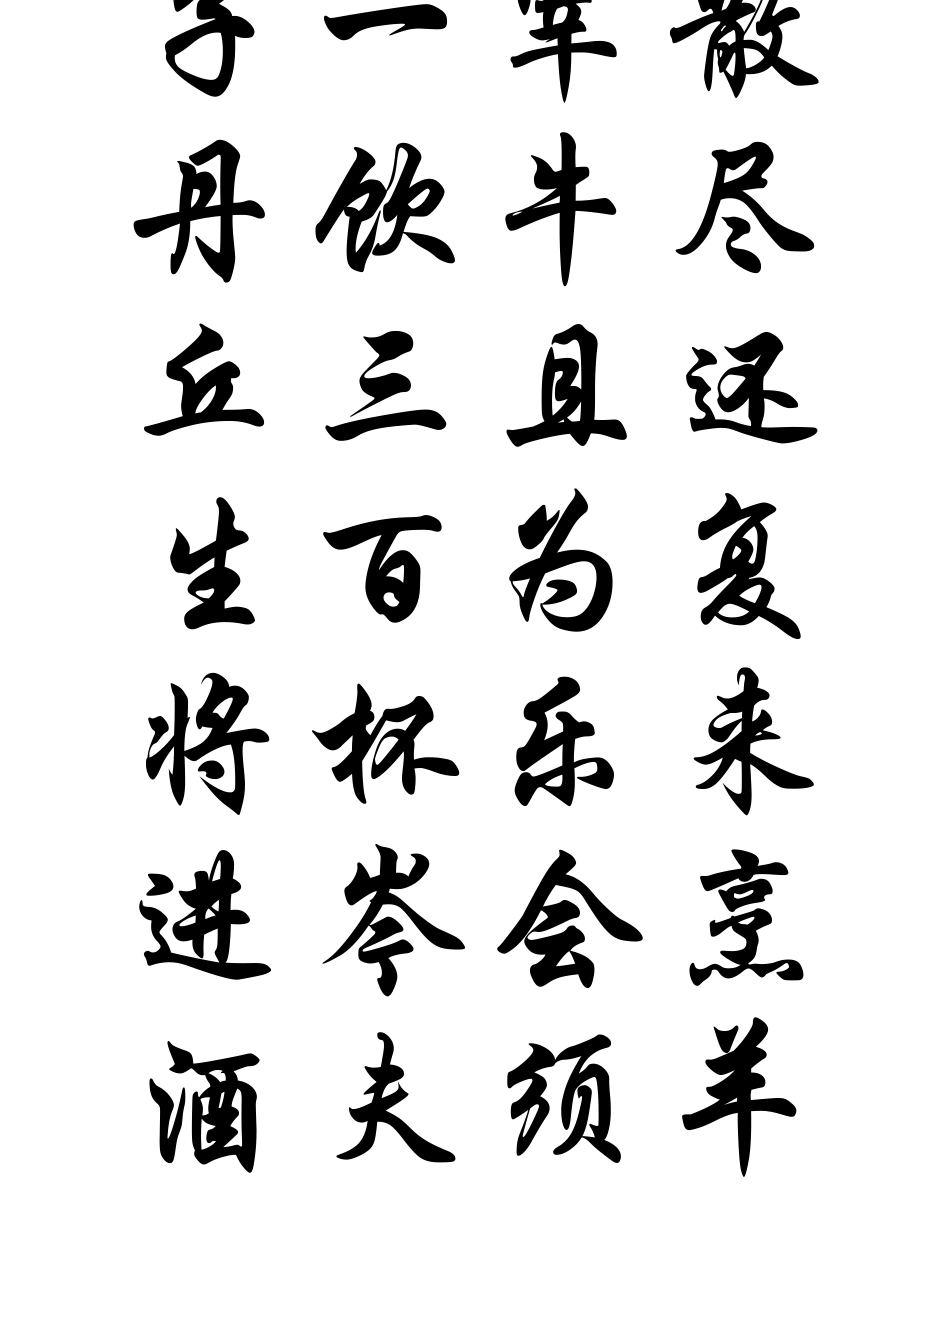 散尽还复来烹羊
宰牛且为乐会须
一饮三百杯岑夫
子丹丘生将进酒